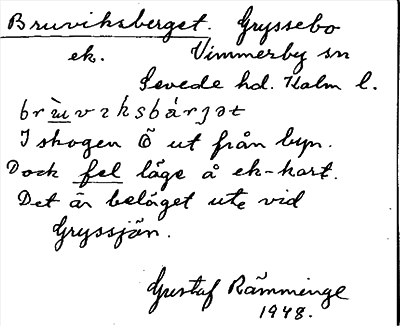 Bruviksberget. Gryssebo
ek. Vimmerby sn
Sevede hd. Kalm l.
br̀ùvıksbárjət
I skogen Ö ut från byn.
Dock fel läge å ek-kart.
Det är beläget ute vid
Gryssjön.
Gustaf Rämminge
1948.